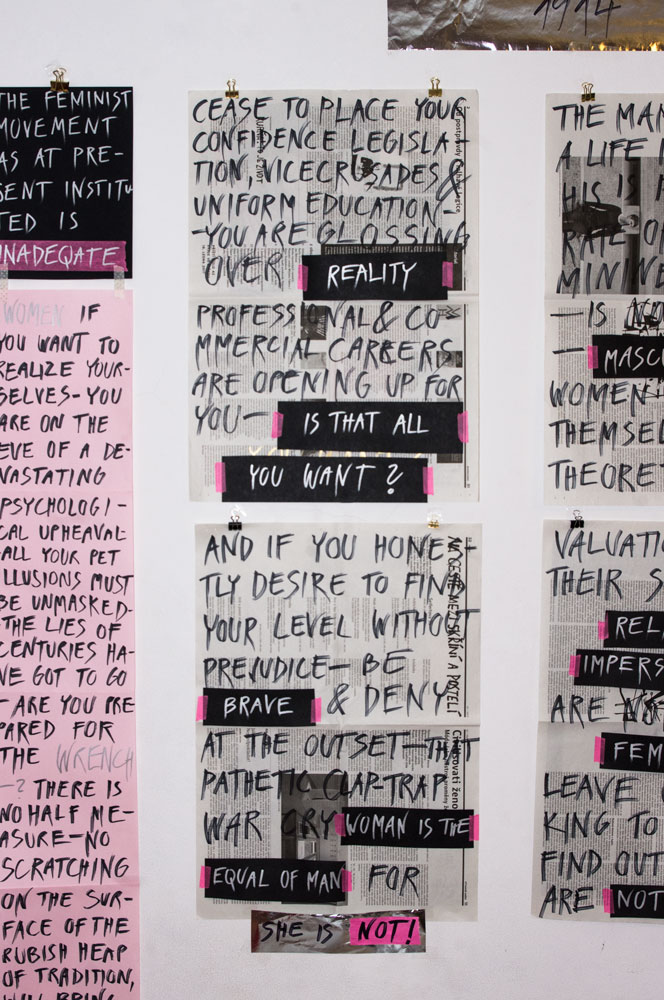 1914
THE FEMINIST
MOVEMENT
AS AT PRE-
SENT INSTITU
TED IS
INADEQATE
WOMEN IF
YOU WANT TO
REALIZE YOUR-
SELVES-YOU
ARE ON THE
EVE OF A DE-
VASTATING
PSYCHOLOGI-
CAL UPHEAVAL-
ALL YOUR PET
ILLUSIONS MUST
BE UNMASKED-
THE LIES OF
CENTURIES HA-
VE GOT TO GO
- ARE YOU PRE
PARED FOR
THE WRENCH
-? THERE IS
NO HALF ME-
ASURE-NO
SCRATCHING
ON THE SUR-
FACE OF THE
RUBISH HEAP
OF TRADITION,
WILL BRING
CEASE TO PLACE YOUR
CONFIDENCE LEGISLA-
TION, VICECRUSADES &
UNIFORM EDUCATION-
-YOU ARE GLOSSING
OVER REALITY
PROFESSIONAL & CO-
MMERCIAL CAREERS
ARE OPENING UP FOR
YOU- IS THAT ALL
YOU WANT?
AND IF YOU HONES-
TLY DESIRE TO FIND
YOUR LEVEL WITHOUT
PREJUDICE- BE
BRAVE & DENY
AT THE OUTSET-THAT
PATHETIC CLAP-TRAP
WAR CRY WOMAN IS THE
EQUAL OF MAN FOR
SHE IS NOT!
MEZI SKŘÍNÍ A POSTELÍ
THE MAN
A LIFE
HIS IS
RAIL OF
MININ
- IS
- MASC
WOMEN
THEMSEL
THEORET
VALUATI
THEIR S
REL
IMPERS
ARE
FEM
LEAVE
KING TO
FIND OUT
ARE NOT